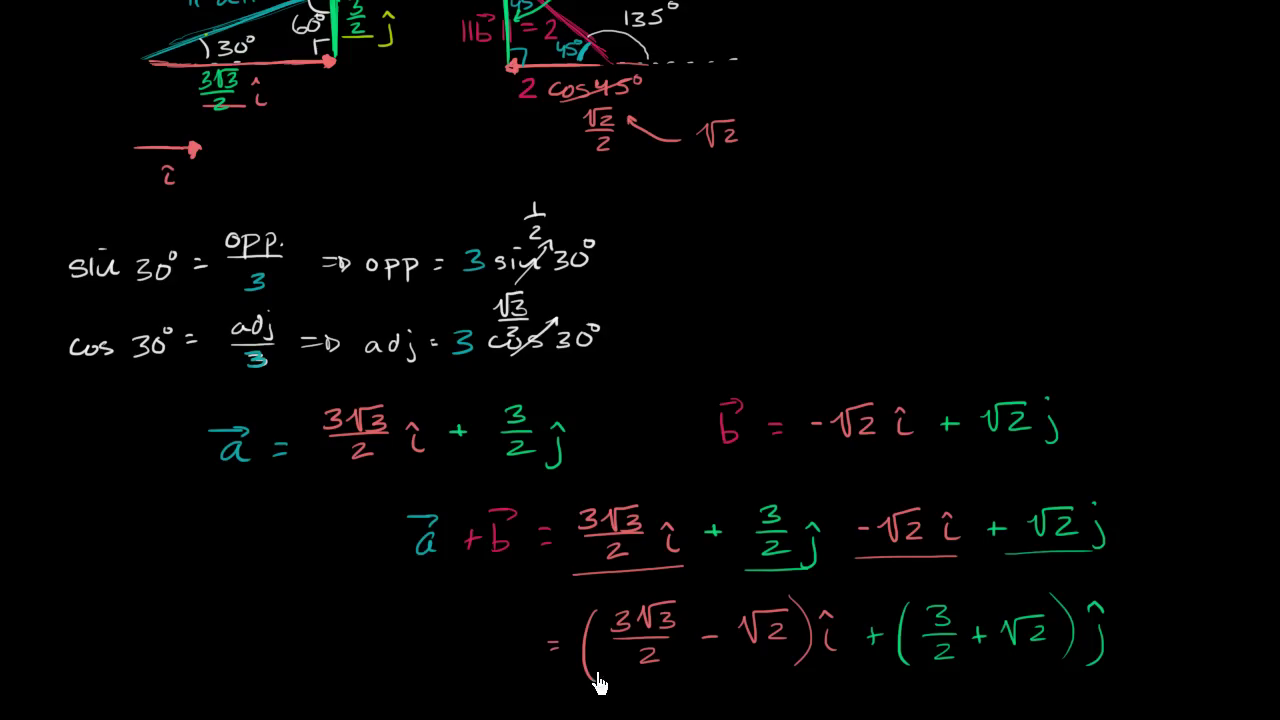 60° 3/2 ĵ
30°
3√3/2 î
||b⃗|| = 2 45° 135°
45°
2 cos 45°
√2/2 √2
î
sin 30° = opp./3 ⇒ opp = 3 sin 30° 1/2
cos 30° = adj/3 ⇒ adj = 3 cos 30° √3/2
a⃗ = 3√3/2 î + 3/2 ĵ
b⃗ = -√2 î + √2 j
a⃗ + b⃗ = 3√3/2 î + 3/2 ĵ -√2 î + √2 j
= (3√3/2 - √2) î + (3/2 + √2) ĵ